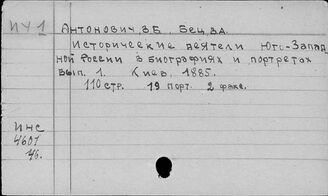 ИЧ 1
Антонович, В.Б. Бец, В.А.
Исторические деятели Юго-Запад
ной России в биографиях и портретах
Вып. 1. Киев, 1885.
110 стр. 19 порт. 2 факс.
Инс
4601
46.